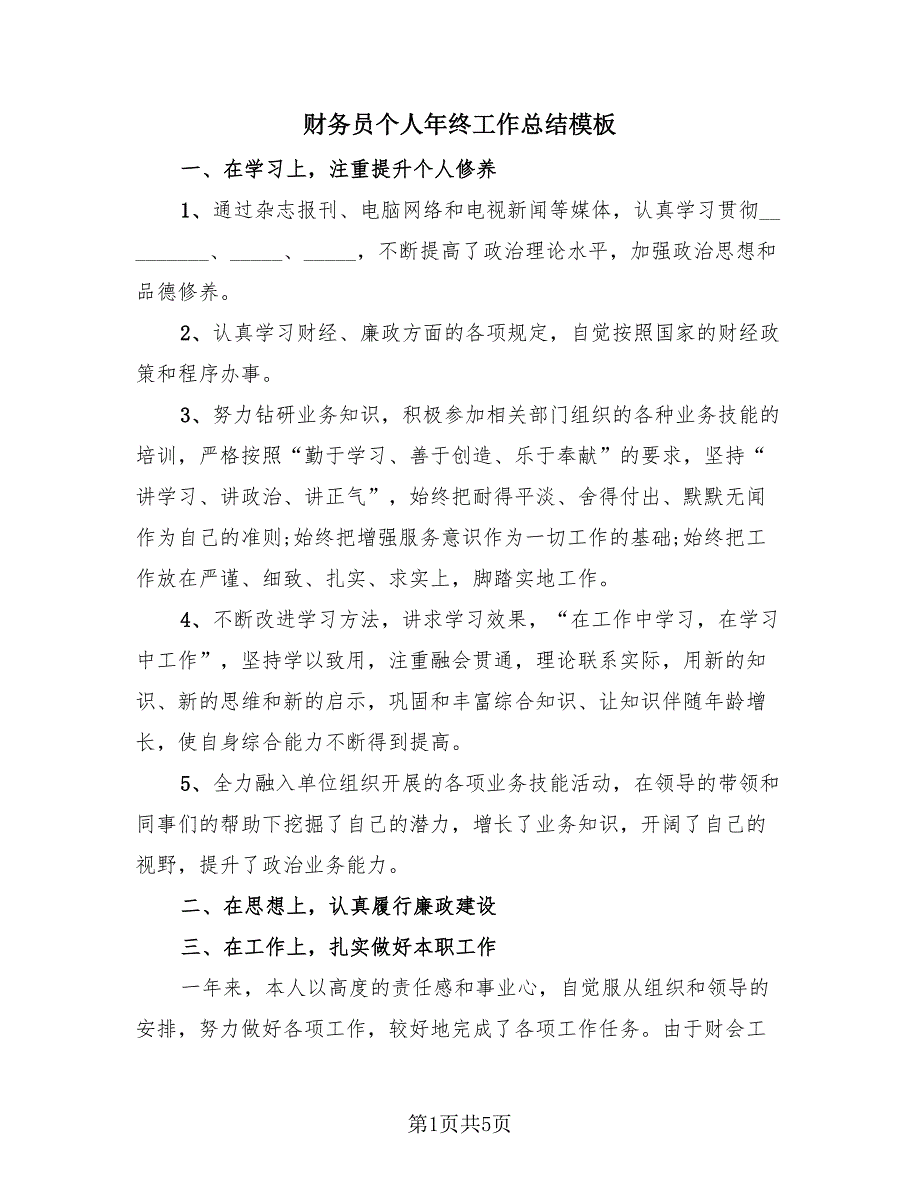 财务员个人年终工作总结模板
一、在学习上，注重提升个人修养
1、通过杂志报刊、电脑网络和电视新闻等媒体，认真学习贯彻__
_______、_____、_____，不断提高了政治理论水平，加强政治思想和
品德修养。
2、认真学习财经、廉政方面的各项规定，自觉按照国家的财经政
策和程序办事。
3、努力钻研业务知识，积极参加相关部门组织的各种业务技能的
培训，严格按照“勤于学习、善于创造、乐于奉献”的要求，坚持“
讲学习、讲政治、讲正气”，始终把耐得平淡、舍得付出、默默无闻
作为自己的准则;始终把增强服务意识作为一切工作的基础;始终把工
作放在严谨、细致、扎实、求实上，脚踏实地工作。
4、不断改进学习方法，讲求学习效果，“在工作中学习，在学习
中工作”，坚持学以致用，注重融会贯通，理论联系实际，用新的知
识、新的思维和新的启示，巩固和丰富综合知识、让知识伴随年龄增
长，使自身综合能力不断得到提高。
5、全力融入单位组织开展的各项业务技能活动，在领导的带领和
同事们的帮助下挖掘了自己的潜力，增长了业务知识，开阔了自己的
视野，提升了政治业务能力。
二、在思想上，认真履行廉政建设
三、在工作上，扎实做好本职工作
一年来，本人以高度的责任感和事业心，自觉服从组织和领导的
安排，努力做好各项工作，较好地完成了各项工作任务。由于财会工
第1页共5页